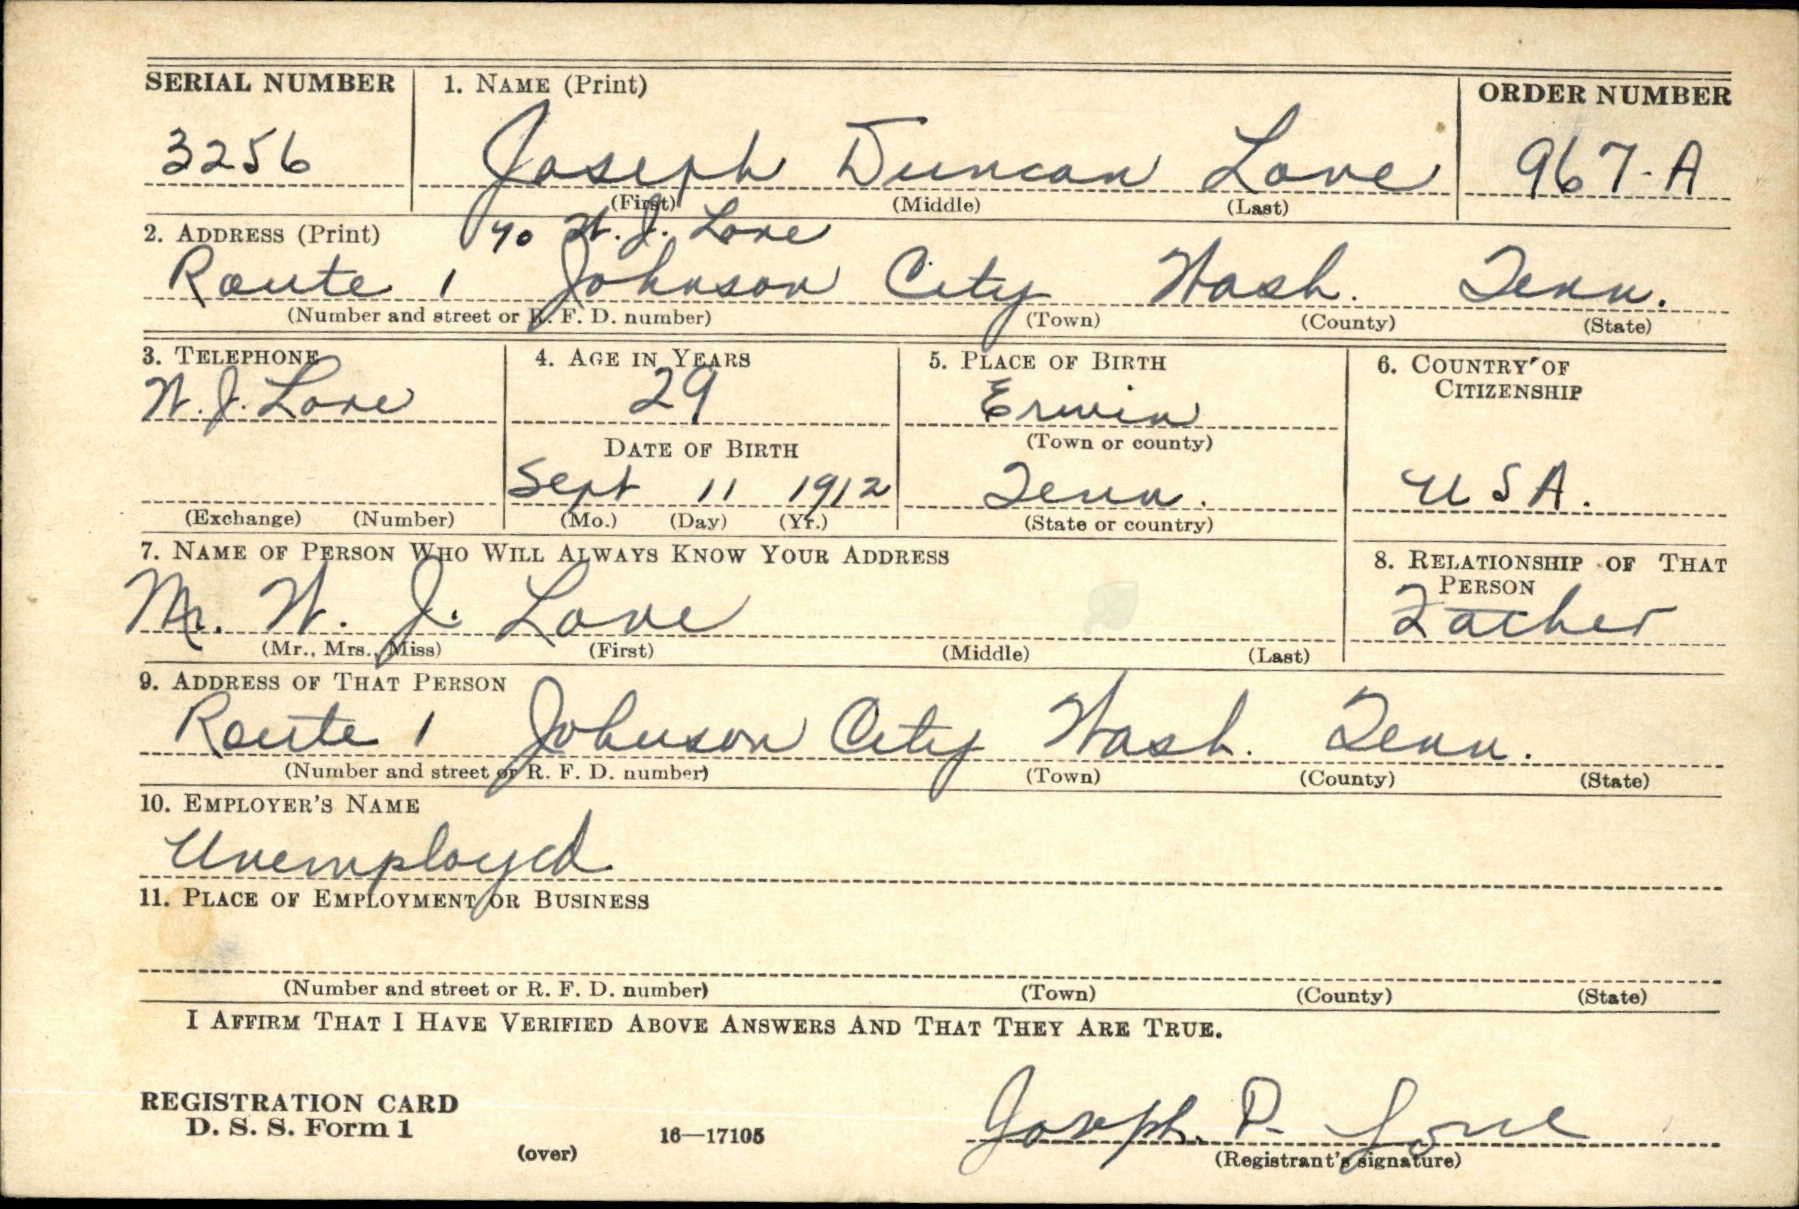 SERIAL NUMBER 1. NAME (Print) ORDER NUMBER
3256 Joseph Duncan Love 967-A
(First) (Middle) (Last)
2. ADDRESS (Print) % W. J. Love
Route 1 Johnson City Wash. Tenn.
(Number and street or R. F. D. number) (Town) (County) (State)
3. TELEPHONE 4. AGE IN YEARS 5. PLACE OF BIRTH 6. COUNTRY OF
CITIZENSHIP
W. J. Love 29 Erwin
DATE OF BIRTH (Town or county)
Sept 11 1912 Tenn. USA.
(Exchange) (Number) (Mo.) (Day) (Yr.) (State or country)
7. NAME OF PERSON WHO WILL ALWAYS KNOW YOUR ADDRESS 8. RELATIONSHIP OF THAT
PERSON
Mr. W. J. Love Father
(Mr., Mrs., Miss) (First) (Middle) (Last)
9. ADDRESS OF THAT PERSON
Route 1 Johnson City Wash. Tenn.
(Number and street or R. F. D. number) (Town) (County) (State)
10. EMPLOYER'S NAME
Unemployed
11. PLACE OF EMPLOYMENT OR BUSINESS
(Number and street or R. F. D. number) (Town) (County) (State)
I AFFIRM THAT I HAVE VERIFIED ABOVE ANSWERS AND THAT THEY ARE TRUE.
REGISTRATION CARD
D. S. S. Form 1
(over) 16—17105 Joseph. D. Love
(Registrant's signature)